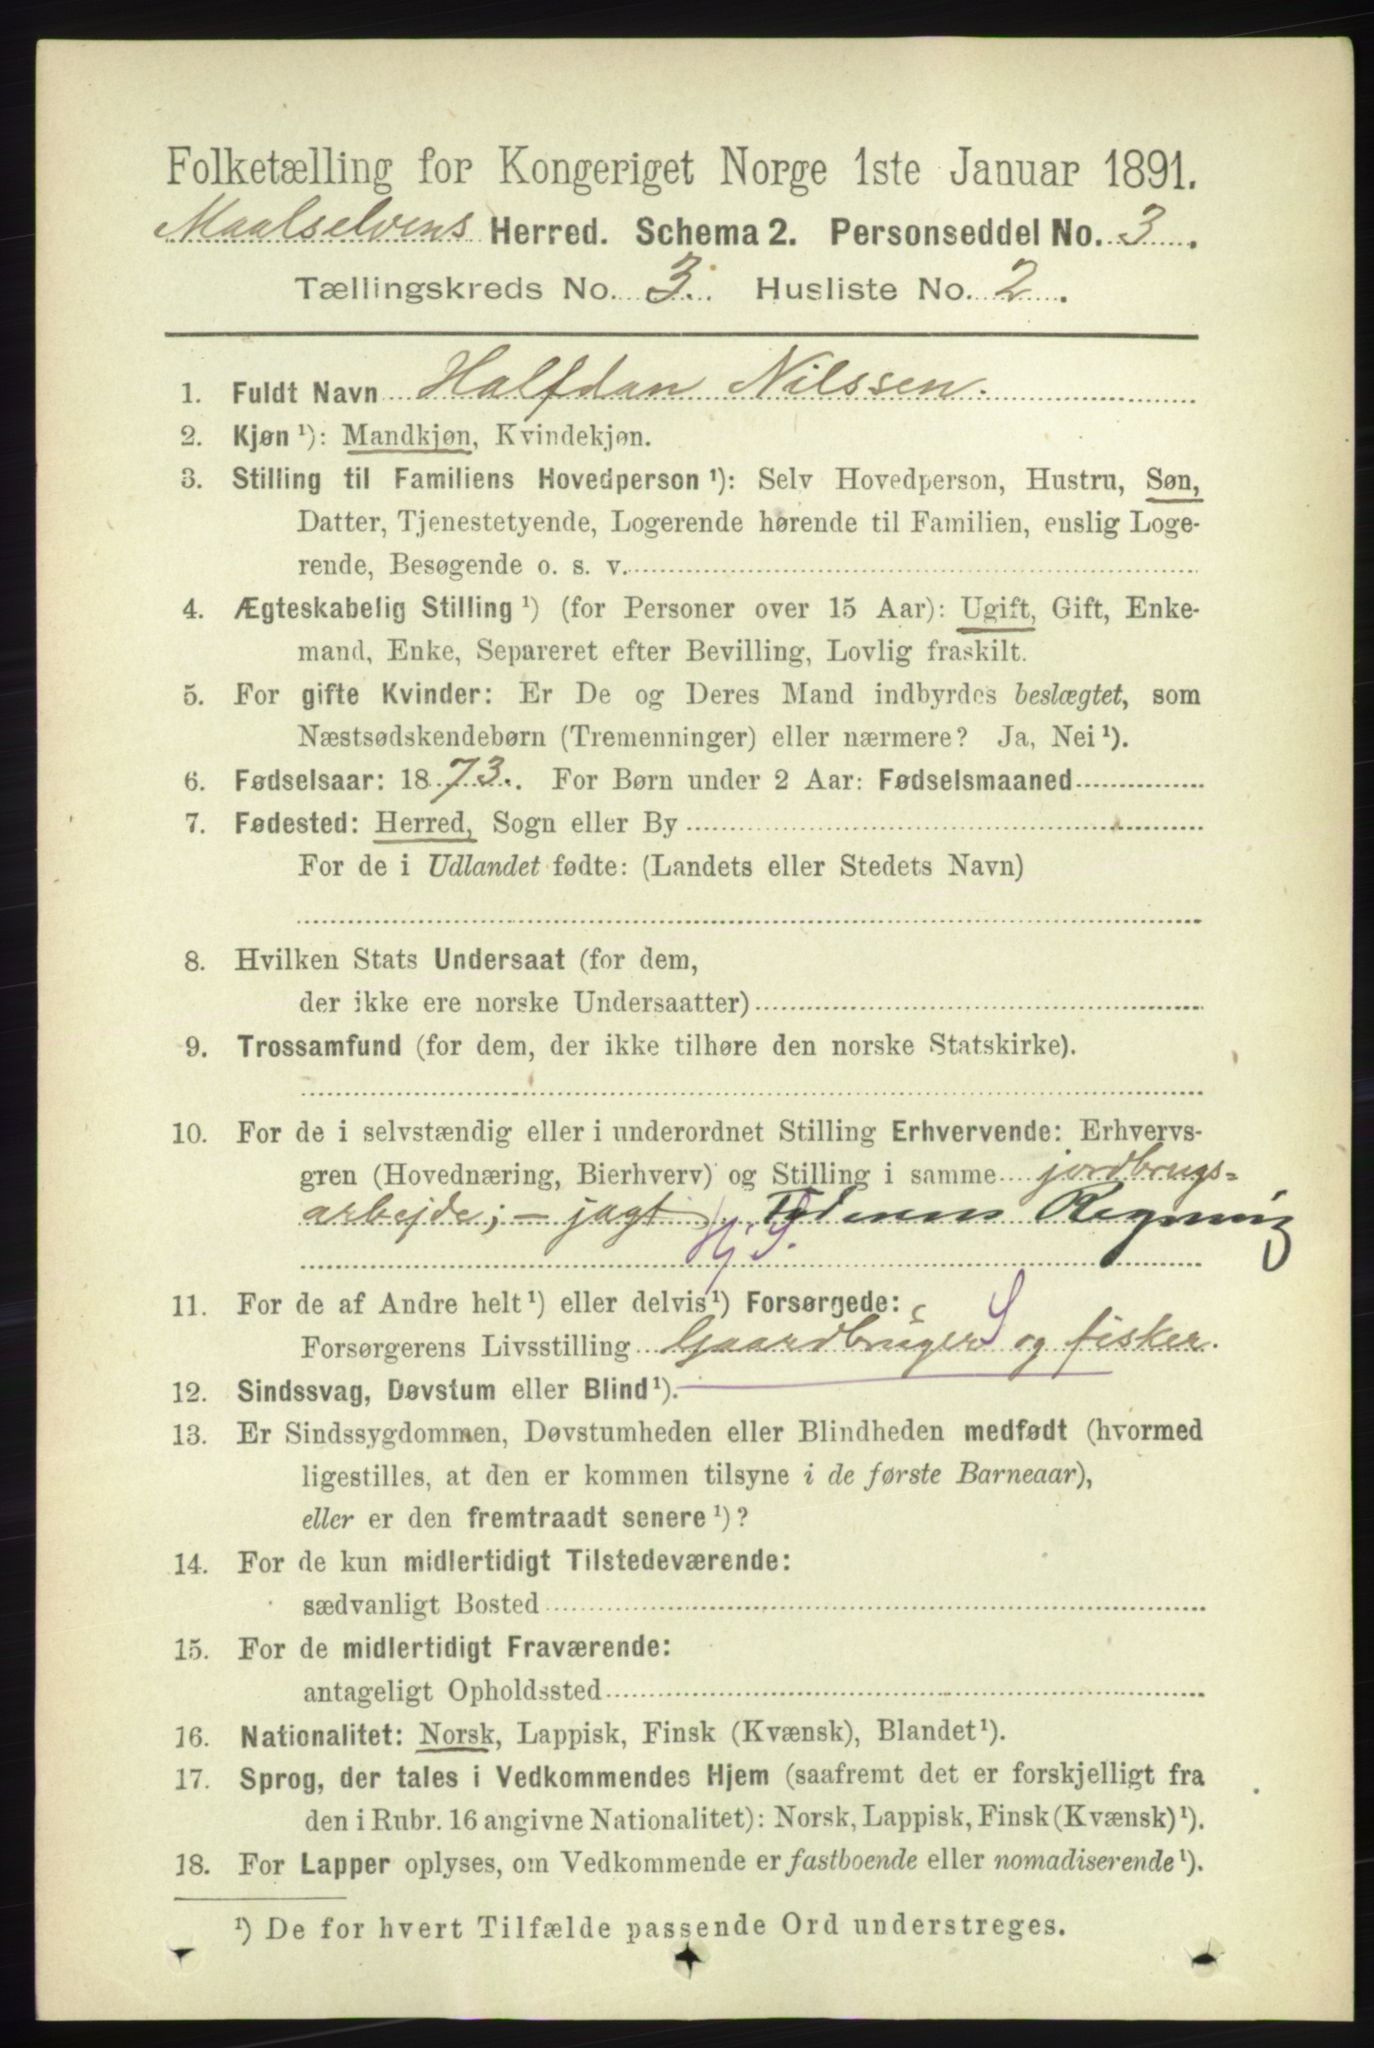 Folketælling for Kongeriget Norge 1ste Januar 1891.
Maalselvens Herred. Schema 2. Personseddel No. 3.
Tællingskreds No. 3. Husliste No. 2.
1. Fuldt Navn Halfdan Nilssen.
2. Kjøn ¹): Mandkjøn, Kvindekjøn.
3. Stilling til Familiens Hovedperson ¹): Selv Hovedperson, Hustru, Søn,
Datter, Tjenestetyende, Logerende hørende til Familien, enslig Loge-
rende, Besøgende o. s. v.
4. Ægteskabelig Stilling ¹) (for Personer over 15 Aar): Ugift, Gift, Enke-
mand, Enke, Separeret efter Bevilling, Lovlig fraskilt.
5. For gifte Kvinder: Er De og Deres Mand indbyrdes beslægtet, som
Næstsødskendebørn (Tremenninger) eller nærmere? Ja, Nei ¹).
6. Fødselsaar: 1873. For Børn under 2 Aar: Fødselsmaaned
7. Fødested: Herred, Sogn eller By
For de i Udlandet fødte: (Landets eller Stedets Navn)
8. Hvilken Stats Undersaat (for dem,
der ikke ere norske Undersaatter)
9. Trossamfund (for dem, der ikke tilhøre den norske Statskirke).
10. For de i selvstændig eller i underordnet Stilling Erhvervende: Erhvervs-
gren (Hovednæring, Bierhverv) og Stilling i samme jordbrugs=
arbejde; - jagt Regning
11. For de af Andre helt ¹) eller delvis ¹) Forsørgede:
Forsørgerens Livsstilling Gaardbruger S og fisker.
12. Sindssvag, Døvstum eller Blind ¹).
13. Er Sindssygdommen, Døvstumheden eller Blindheden medfødt (hvormed
ligestilles, at den er kommen tilsyne i de første Barneaar),
eller er den fremtraadt senere ¹)?
14. For de kun midlertidigt Tilstedeværende:
sædvanligt Bosted
15. For de midlertidigt Fraværende:
antageligt Opholdssted
16. Nationalitet: Norsk, Lappisk, Finsk (Kvænsk), Blandet ¹).
17. Sprog, der tales i Vedkommendes Hjem (saafremt det er forskjelligt fra
den i Rubr. 16 angivne Nationalitet): Norsk, Lappisk, Finsk (Kvænsk) ¹).
18. For Lapper oplyses, om Vedkommende er fastboende eller nomadiserende ¹).
¹) De for hvert Tilfælde passende Ord understreges.